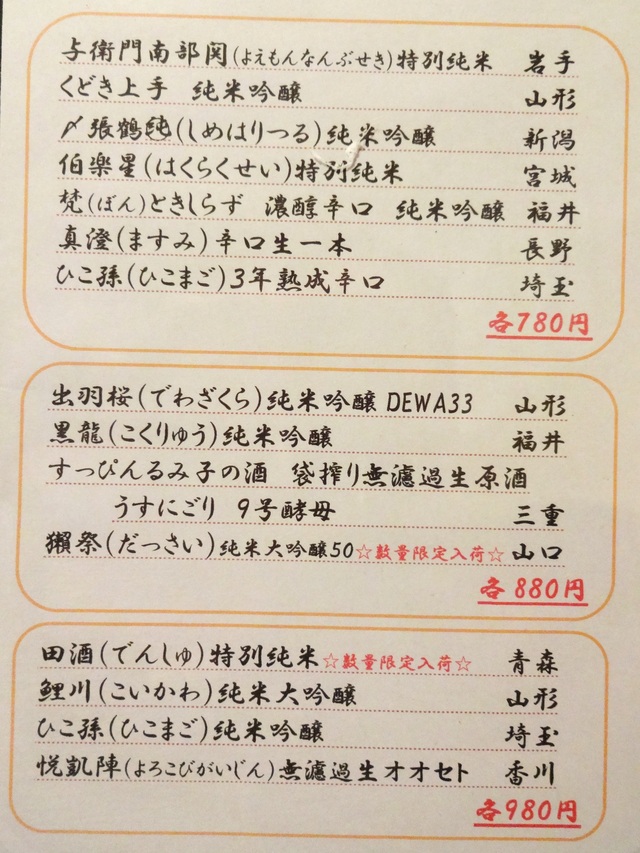 与衛門南部関(よえもんなんぶせき)特別純米 岩手
くどき上手 純米吟醸 山形
〆張鶴純(しめはりつる)純米吟醸 新潟
伯楽星(はくらくせい)特別純米 宮城
梵(ぼん)ときしらず 濃醇辛口 純米吟醸 福井
真澄(ますみ)辛口生一本 長野
ひこ孫(ひこまご)3年熟成辛口 埼玉
各780円
出羽桜(でわざくら)純米吟醸 DEWA33 山形
黒龍(こくりゅう)純米吟醸 福井
すっぴんるみ子の酒 袋搾り無濾過生原酒
うすにごり 9号酵母 三重
獺祭(だっさい)純米大吟醸50☆数量限定入荷☆ 山口
各880円
田酒(でんしゅ)特別純米☆数量限定入荷☆ 青森
鯉川(こいかわ)純米大吟醸 山形
ひこ孫(ひこまご)純米吟醸 埼玉
悦凱陣(よろこびがいじん)無濾過生オオセト 香川
各980円